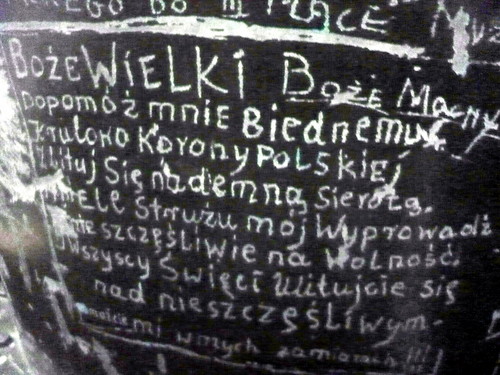 DO
BOŻE WiELKi BOŻE Mocny
Dopomóż mnie Biednemu
Krulowo Korony POLSKiEJ
Zlituj Się nademną Sierotą.
Aniele Strużu mój Wyprowadź
mnie szczęśliwie na Wolność
Wszyscy Święci Ulitujcie się
nad nieszczęśliwym.
mi w mych zamiarach!!!